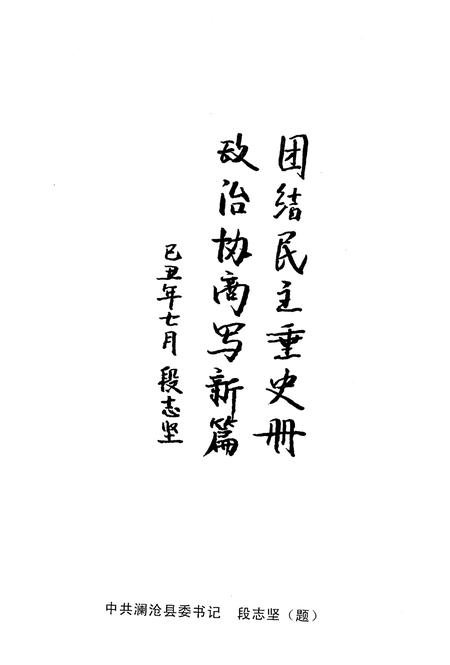 团结民主垂史册
政治协商写新篇
己丑年七月 段志坚
中共澜沧县委书记 段志坚（题）